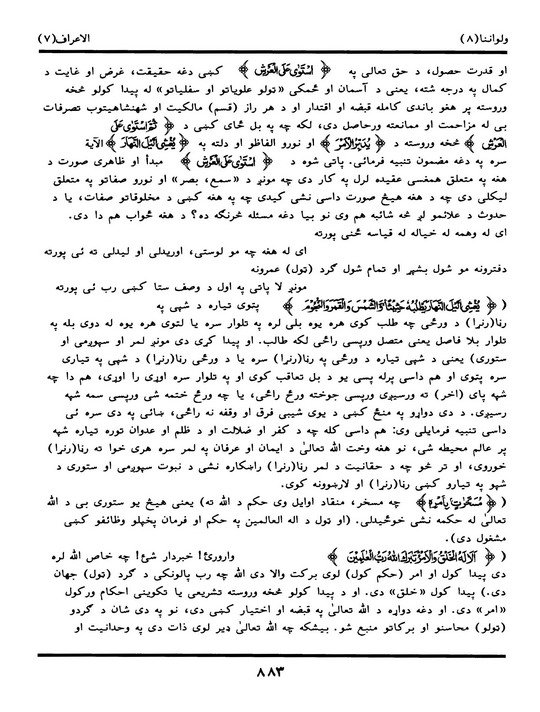 ولواننا(٨) الاعراف(٧)
او قدرت حصول، د حق تعالی په ﴿ اسْتَوٰى عَلَى الْعَرْشِ ﴾ کښی دغه حقیقت، غرض او غایت د
کمال په درجه شته، یعنی د آسمان او ځمکی «ټولو علویاتو او سفلیاتو» له پیدا کولو څخه
وروسته پر هغو باندی کامله قبضه او اقتدار او د هر راز (قسم) مالکیت او شهنشاهیتوب تصرفات
بی له مزاحمت او ممانعته ورحاصل دی، لکه چه په بل ځای کښی د ﴿ ثُمَّ اسْتَوٰى عَلَى
الْعَرْشِ ﴾ څخه وروسته د ﴿ يُدَبِّرُ الْاَمْرَ ﴾ او نورو الفاظو او دلته په ﴿ يُغْشِى الَّيْلَ النَّهَارَ ﴾ الآیة
سره په دغه مضمون تنبیه فرمائی. پاتی شوه د ﴿ اسْتَوٰى عَلَى الْعَرْشِ ﴾ مبدأ او ظاهری صورت د
هغه په متعلق همغسی عقیده لرل په کار دی چه مونږ د «سمع، بصر» او نورو صفاتو په متعلق
لیکلی دی چه د هغه هیڅ صورت داسی نشی کیدی چه په هغه کښی د مخلوقاتو صفات، یا د
حدوث د علائمو لږ څه شائبه هم وی نو بیا دغه مسئله څرنګه ده؟ د هغه ځواب هم دا دی.
ای له وهمه له خیاله له قیاسه ځنی پورته
ای له هغه چه مو لوستی، اوریدلی او لیدلی ته ئی پورته
دفترونه مو شول بشپړ او تمام شول گرد (ټول) عمرونه
مونږ لا پاتی په اول د وصف ستا کښی رب ئی پورته
( ﴿ يُغْشِى الَّيْلَ النَّهَارَ يَطْلُبُهٗ حَثِيْثًا وَّالشَّمْسَ وَالْقَمَرَ وَالنُّجُوْمَ ﴾ پټوی تیاره د شپی په
رڼا(رنړا) د ورځی چه طلب کوی هره یوه بلی لره په تلوار سره یا لټوی هره یوه له دوی بله په
تلوار بلا فاصل یعنی متصل ورپسی راځی لکه طالب. او پیدا کړی دی مونږ لمر او سپوږمی او
ستوری) یعنی د شپی تیاره د ورځی په رڼا(رنړا) سره یا د ورځی رڼا(رنړا) د شپی په تیاری
سره پټوی او هم داسی پرله پسی یو د بل تعاقب کوی او په تلوار سره اوړی را اوړی، هم دا چه
شپه پای (اخر) ته ورسیږی ورپسی جوخته ورځ راځی، یا چه ورځ ختمه شی ورپسی سمه شپه
رسیږی. د دی دواړو په منځ کښی د یوی شیبی فرق او وقفه نه راځی، ښائی په دی سره ئی
داسی تنبیه فرمایلی وی: هم داسی کله چه د کفر او ضلالت او د ظلم او عدوان توره تیاره شپه
پر عالم محیطه شی، نو هغه وخت الله تعالیٰ د ایمان او عرفان په لمر سره هری خوا ته رڼا(رنړا)
خوروی، او تر څو چه د حقانیت د لمر رڼا(رنړا) راښکاره نشی د نبوت سپوږمی او ستوری د
شپو په تیارو کښی رڼا(رنړا) او لارښوونه کوی.
( ﴿ مُسَخَّرٰتٍۭ بِاَمْرِهٖ ﴾ چه مسخر، منقاد اوایل وی حکم د الله ته) یعنی هیڅ یو ستوری بی د الله
تعالیٰ له حکمه نشی خوځیدلی. (او ټول د اله العالمین په حکم او فرمان پخپلو وظائفو کښی
مشغول دی).
( ﴿ اَلَا لَهُ الْخَلْقُ وَالْاَمْرُ تَبٰرَكَ اللّٰهُ رَبُّ الْعٰلَمِيْنَ ﴾ واورئ! خبردار شئ! چه خاص الله لره
دی پیدا کول او امر (حکم کول) لوی برکت والا دی الله چه رب پالونکی د گرد (ټول) جهان
دی.) پیدا کول «خلق» دی. او د پیدا کولو څخه وروسته تشریعی یا تکوینی احکام ورکول
«امر» دی. او دغه دواړه د الله تعالیٰ په قبضه او اختیار کښی دی، نو په دی شان د گردو
(ټولو) محاسنو او برکاتو منبع شو. بیشکه چه الله تعالیٰ ډیر لوی ذات دی په وحدانیت او
٨٨٣